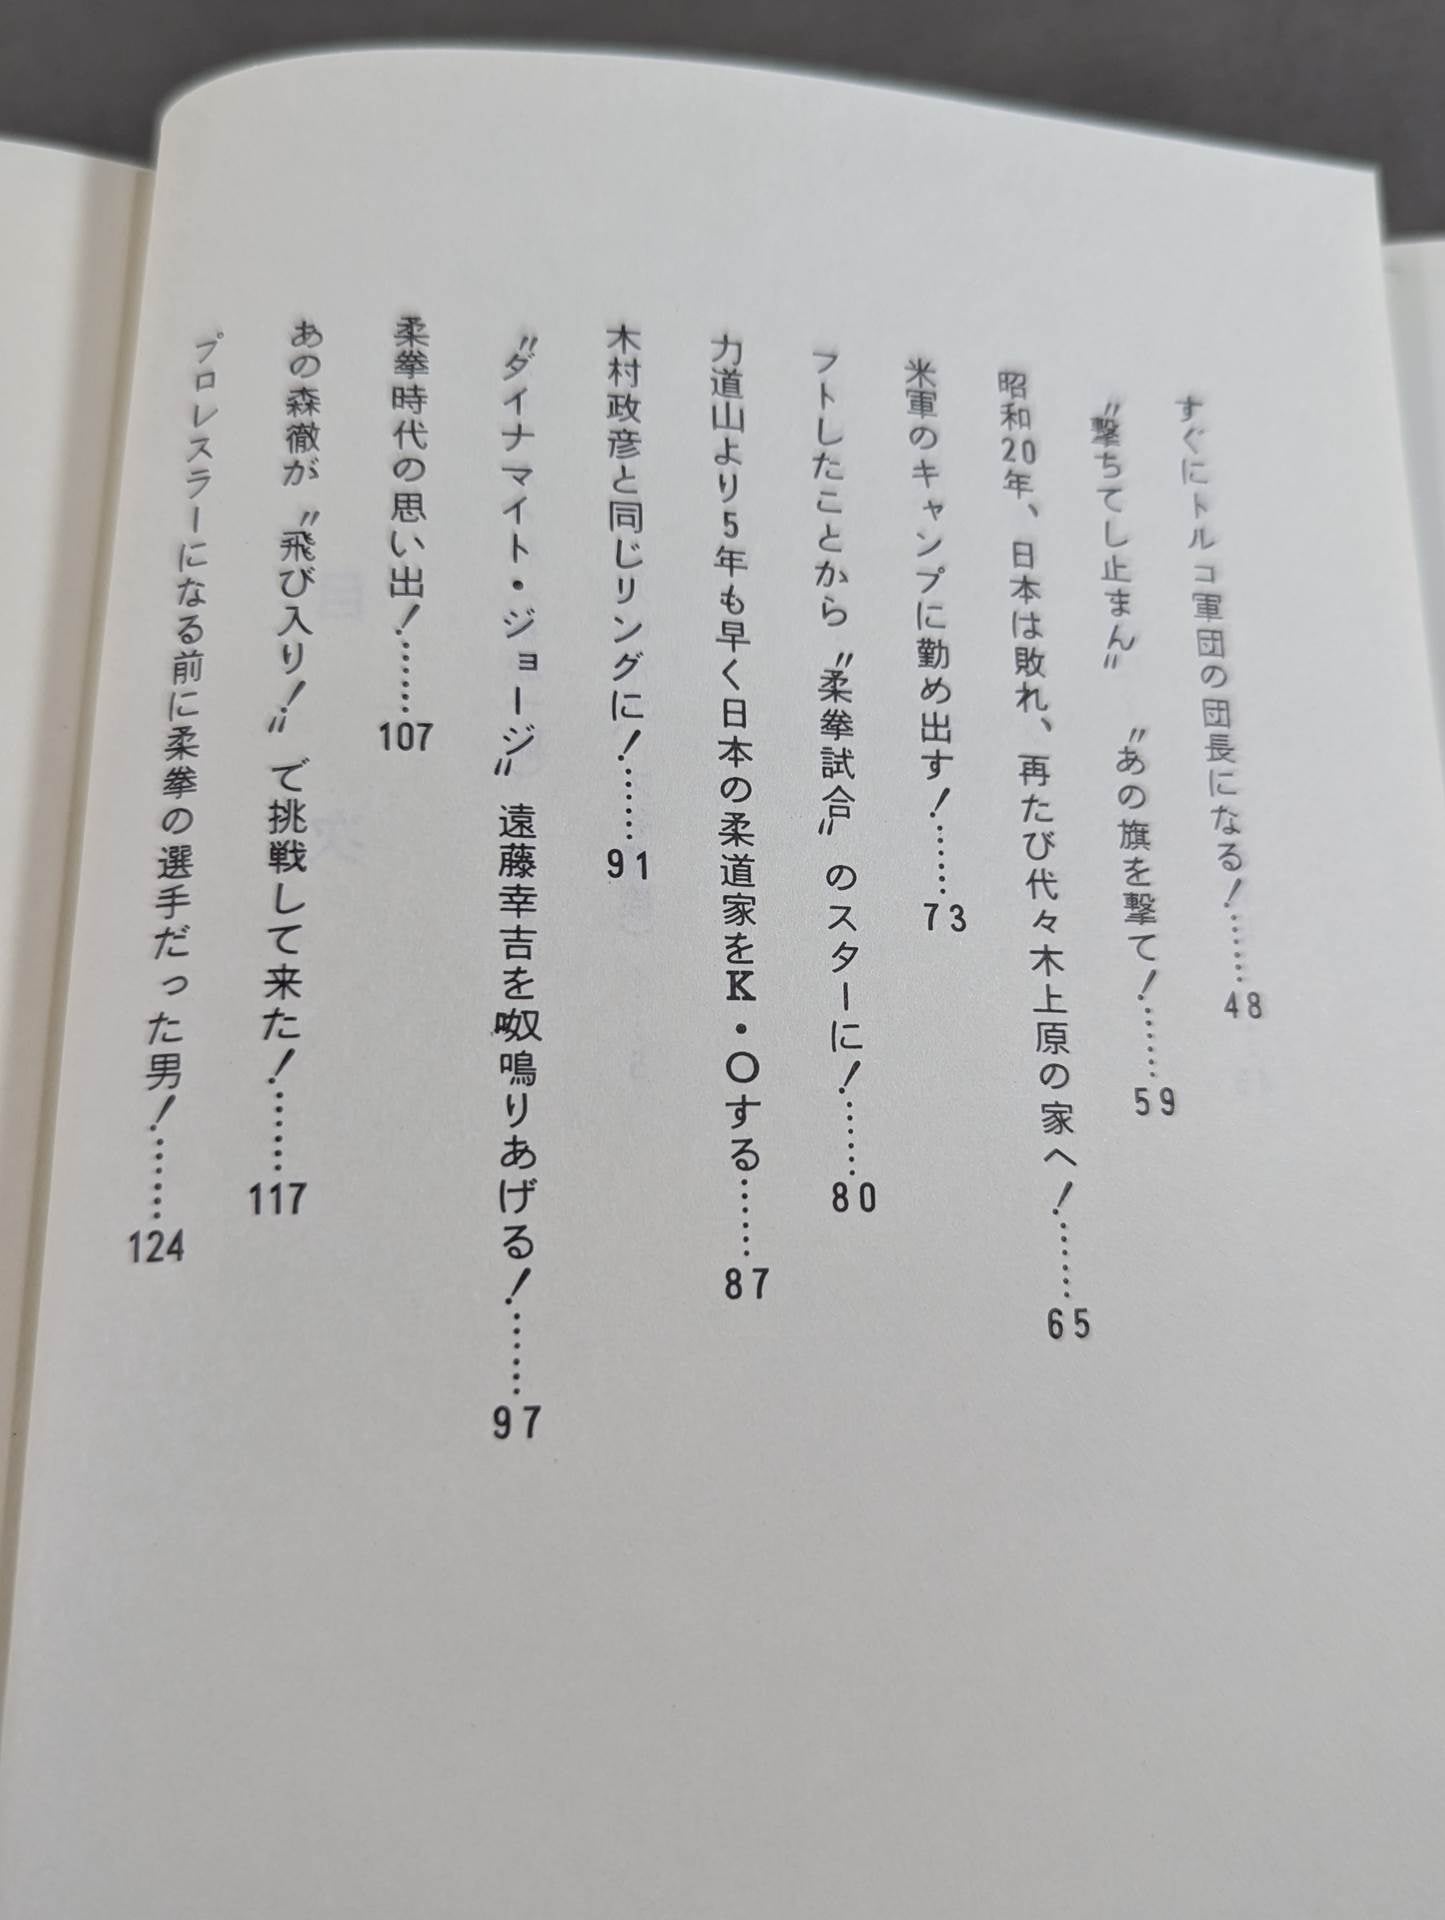 すぐにトルコ軍団の団長になる！……48
〝撃ちてし止まん〟 〝あの旗を撃て！……59
昭和20年、日本は敗れ、再たび代々木上原の家へ！……65
米軍のキャンプに勤め出す！……73
フトしたことから〝柔拳試合〟のスターに！……80
力道山より5年も早く日本の柔道家をK・Oする……87
木村政彦と同じリングに！……91
〝ダイナマイト・ジョージ〟遠藤幸吉を呶鳴りあげる！……97
柔拳時代の思い出！……107
あの森徹が〝飛び入り！〟で挑戦して来た！……117
プロレスラーになる前に柔拳の選手だった男！……124